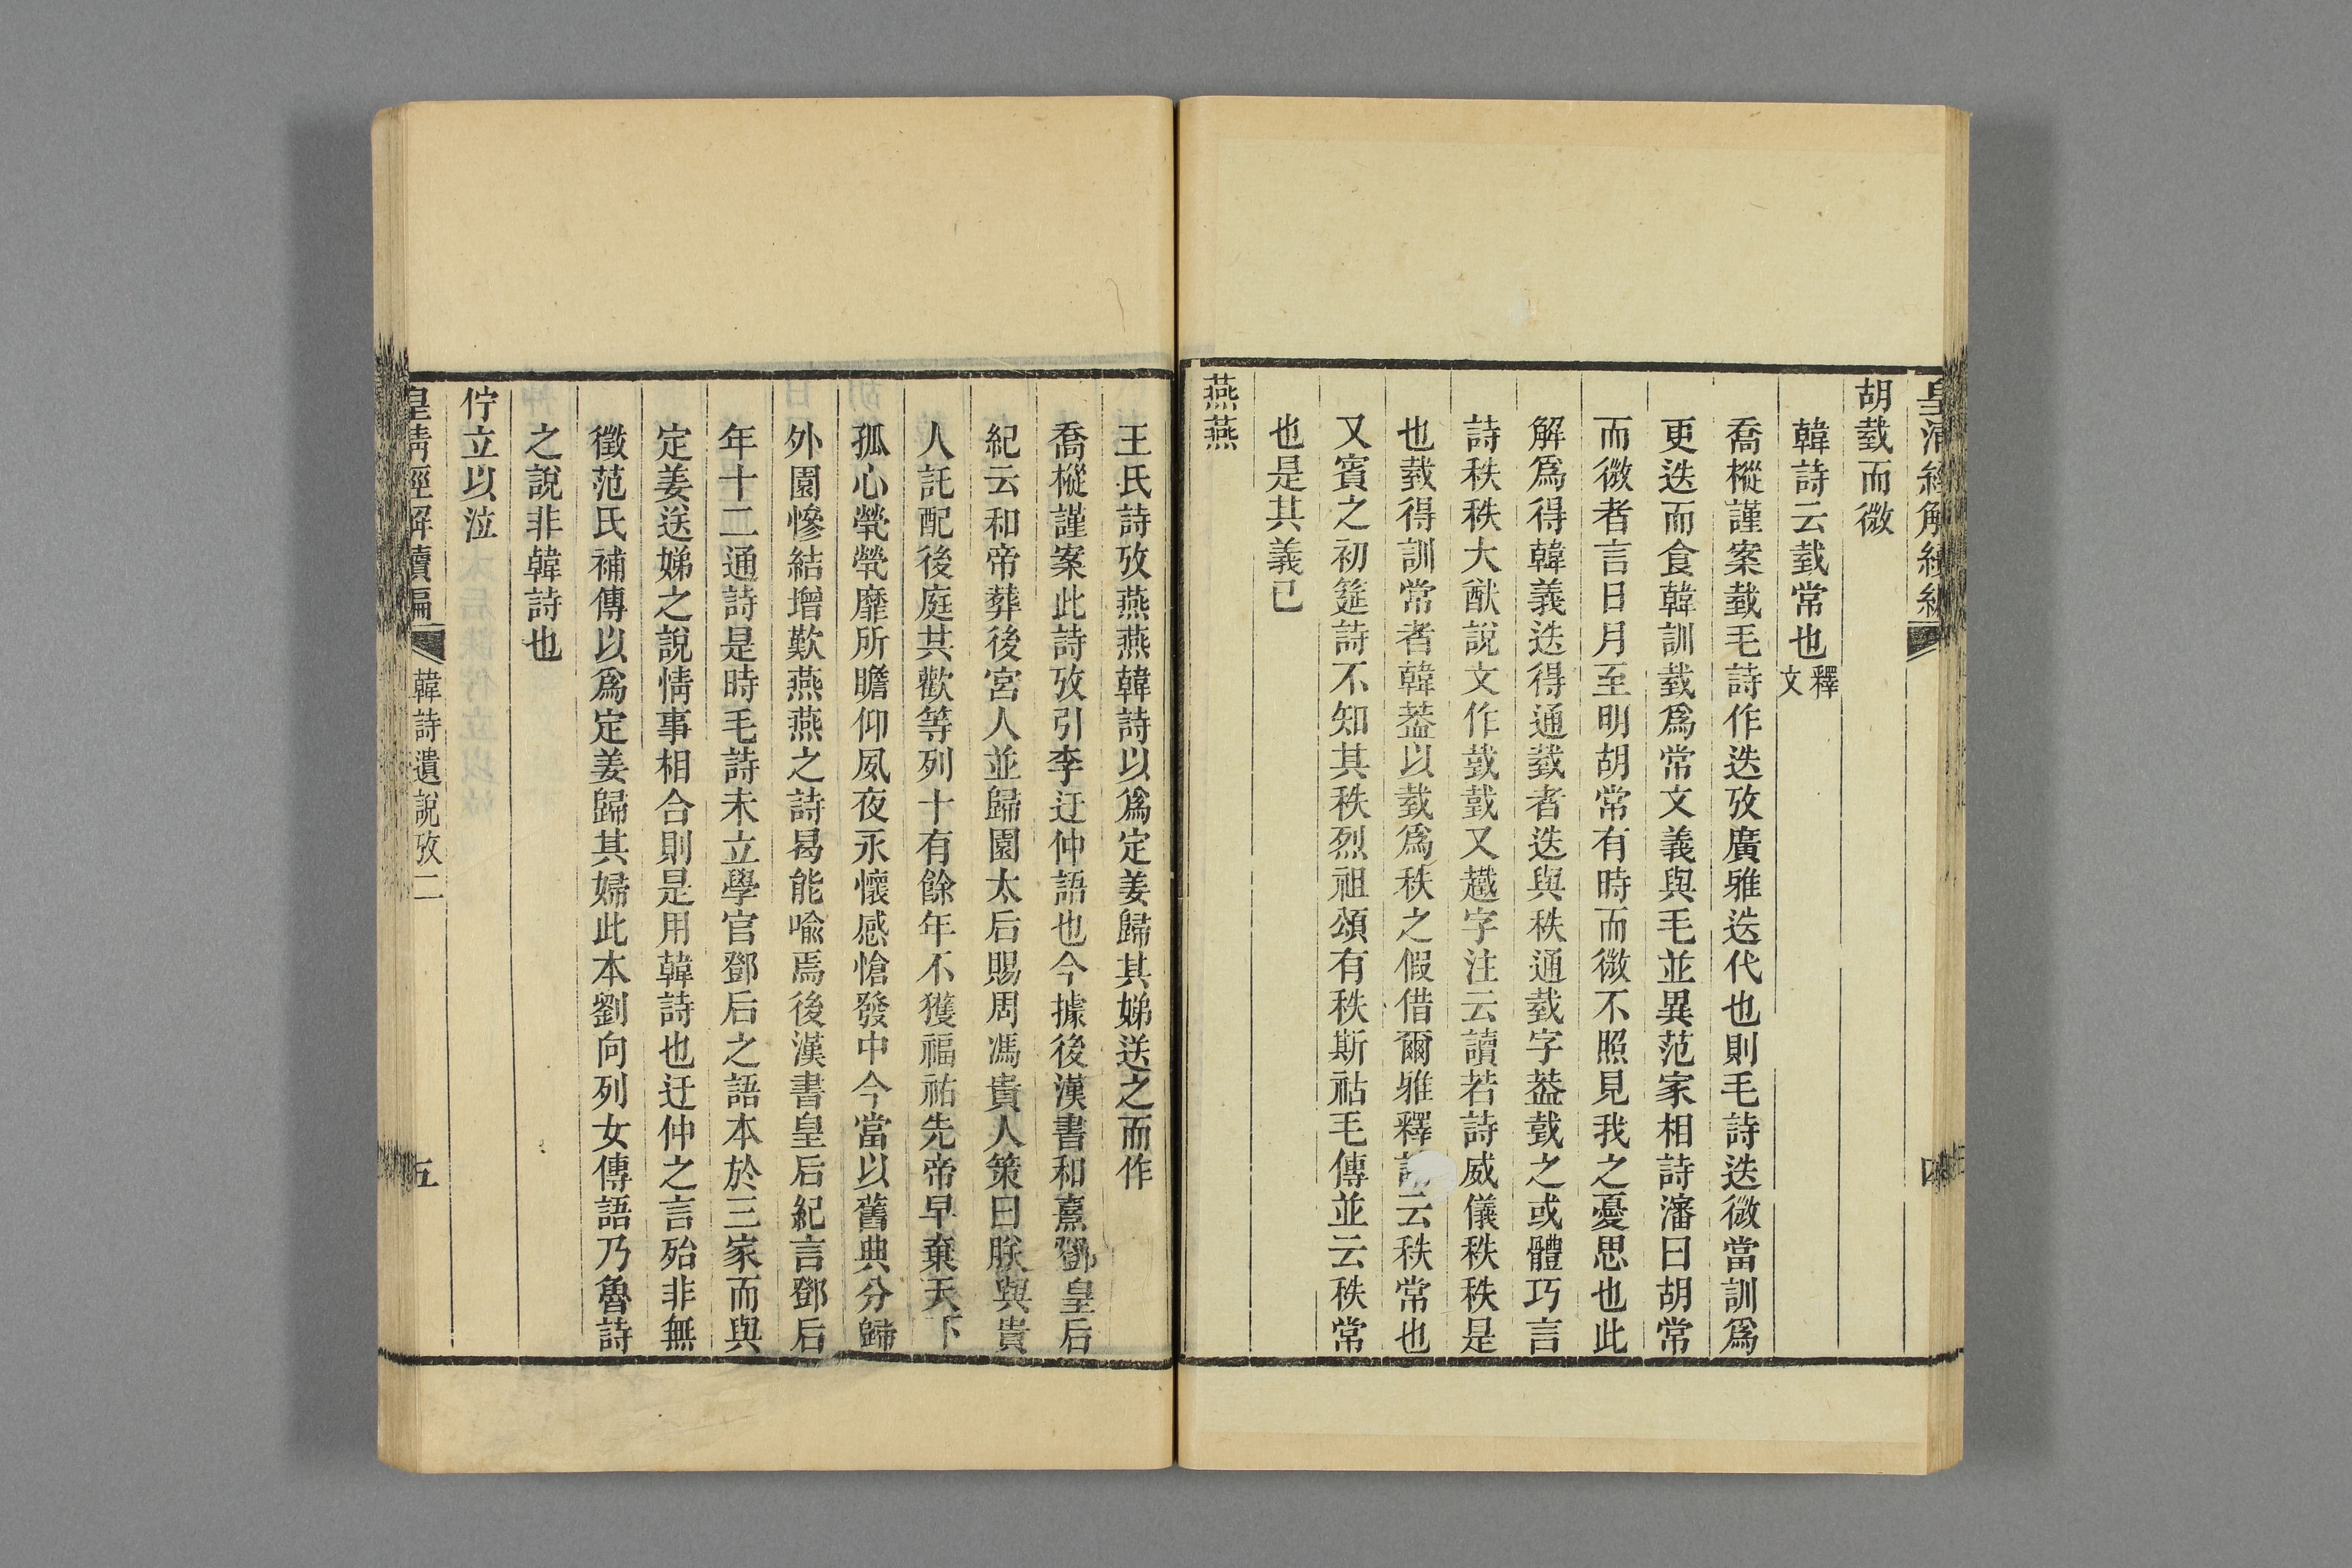 皇清經解續編
四
胡臷而微
韓詩云臷常也釋文
喬樅謹案臷毛詩作迭攷廣雅迭代也則毛詩迭微當訓爲
更迭而食韓訓臷爲常文義與毛並異范家相詩瀋曰胡常
而微者言日月至明胡常有時而微不照見我之憂思也此
解爲得韓義迭得通臷者迭與秩通臷字葢臷之或體巧言
詩秩秩大猷說文作臷臷又趩字注云讀若詩威儀秩秩是
也臷得訓常者韓葢以臷爲秩之假借爾雅釋云秩常也
又賓之初筵詩不知其秩烈祖頌有秩斯祜毛傳並云秩常
也是其義已
燕燕
王氏詩攷燕燕韓詩以爲定姜歸其娣送之而作
喬樅謹案此詩攷引李迂仲語也今據後漢書和熹鄧皇后
紀云和帝葬後宮人並歸園太后賜周馮貴人策曰朕與貴
人託配後庭共歡等列十有餘年不獲福祐先帝早棄天下
孤心煢煢靡所瞻仰夙夜永懷感愴發中今當以舊典分歸
外園慘結增歎燕燕之詩曷能喻焉後漢書皇后紀言鄧后
年十二通詩是時毛詩未立學官鄧后之語本於三家而與
定姜送娣之說情事相合則是用韓詩也迂仲之言殆非無
徵范氏補傳以爲定姜歸其婦此本劉向列女傳語乃魯詩
之說非韓詩也
佇立以泣
皇清經解續編
韓詩遺說攷二
五